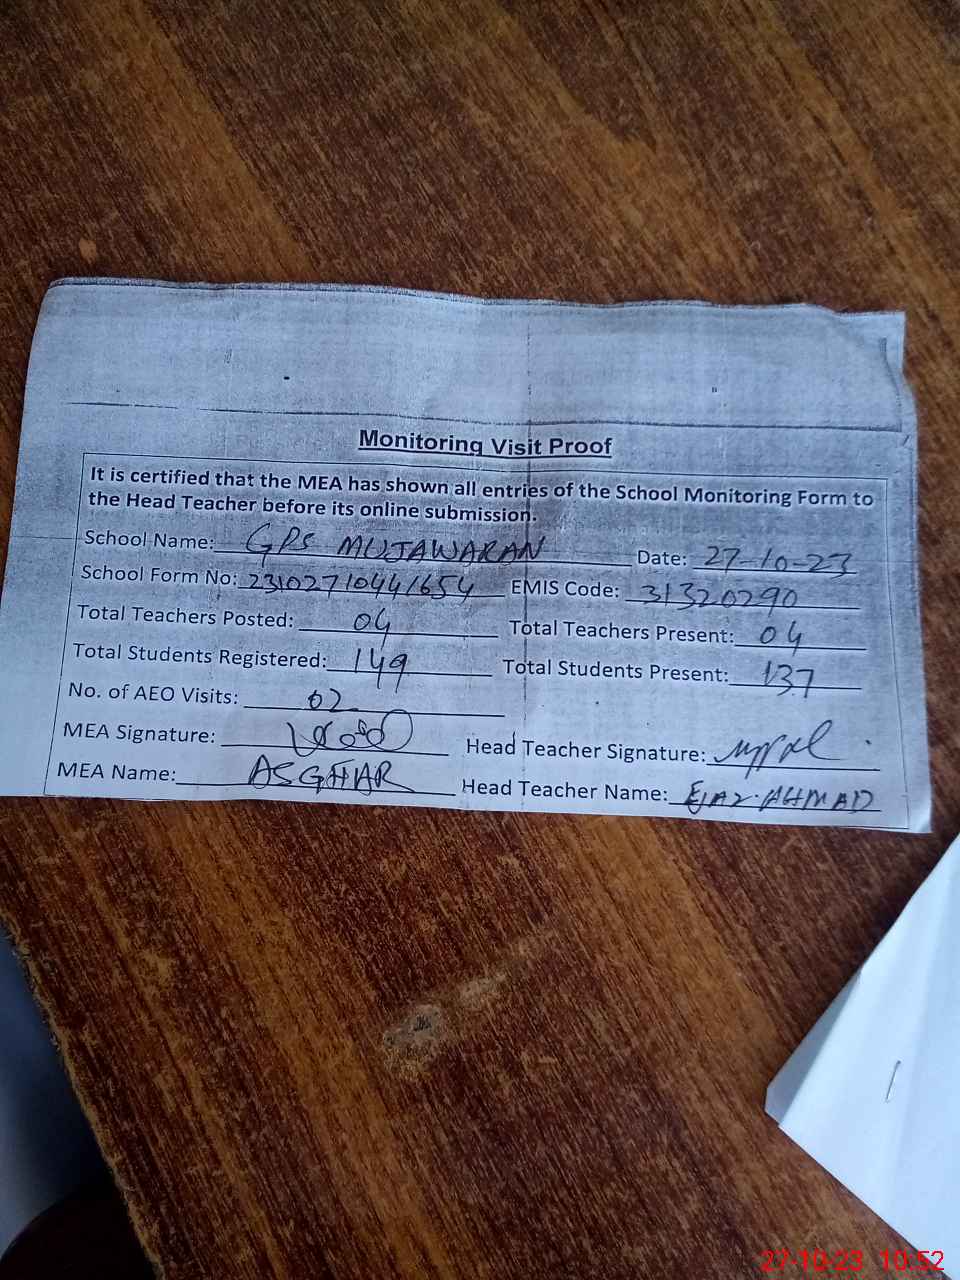 Monitoring Visit Proof
It is certified that the MEA has shown all entries of the School Monitoring Form to
the Head Teacher before its online submission.
School Name: GPS MUJAWARAN Date: 27-10-23
School Form No: 23102710441654 EMIS Code: 31320290
Total Teachers Posted: 04 Total Teachers Present: 04
Total Students Registered: 149 Total Students Present: 137
No. of AEO Visits: 02
MEA Signature: Head Teacher Signature:
MEA Name: ASGHAR Head Teacher Name: EJAZ AHMAD
27-10-23 10:52